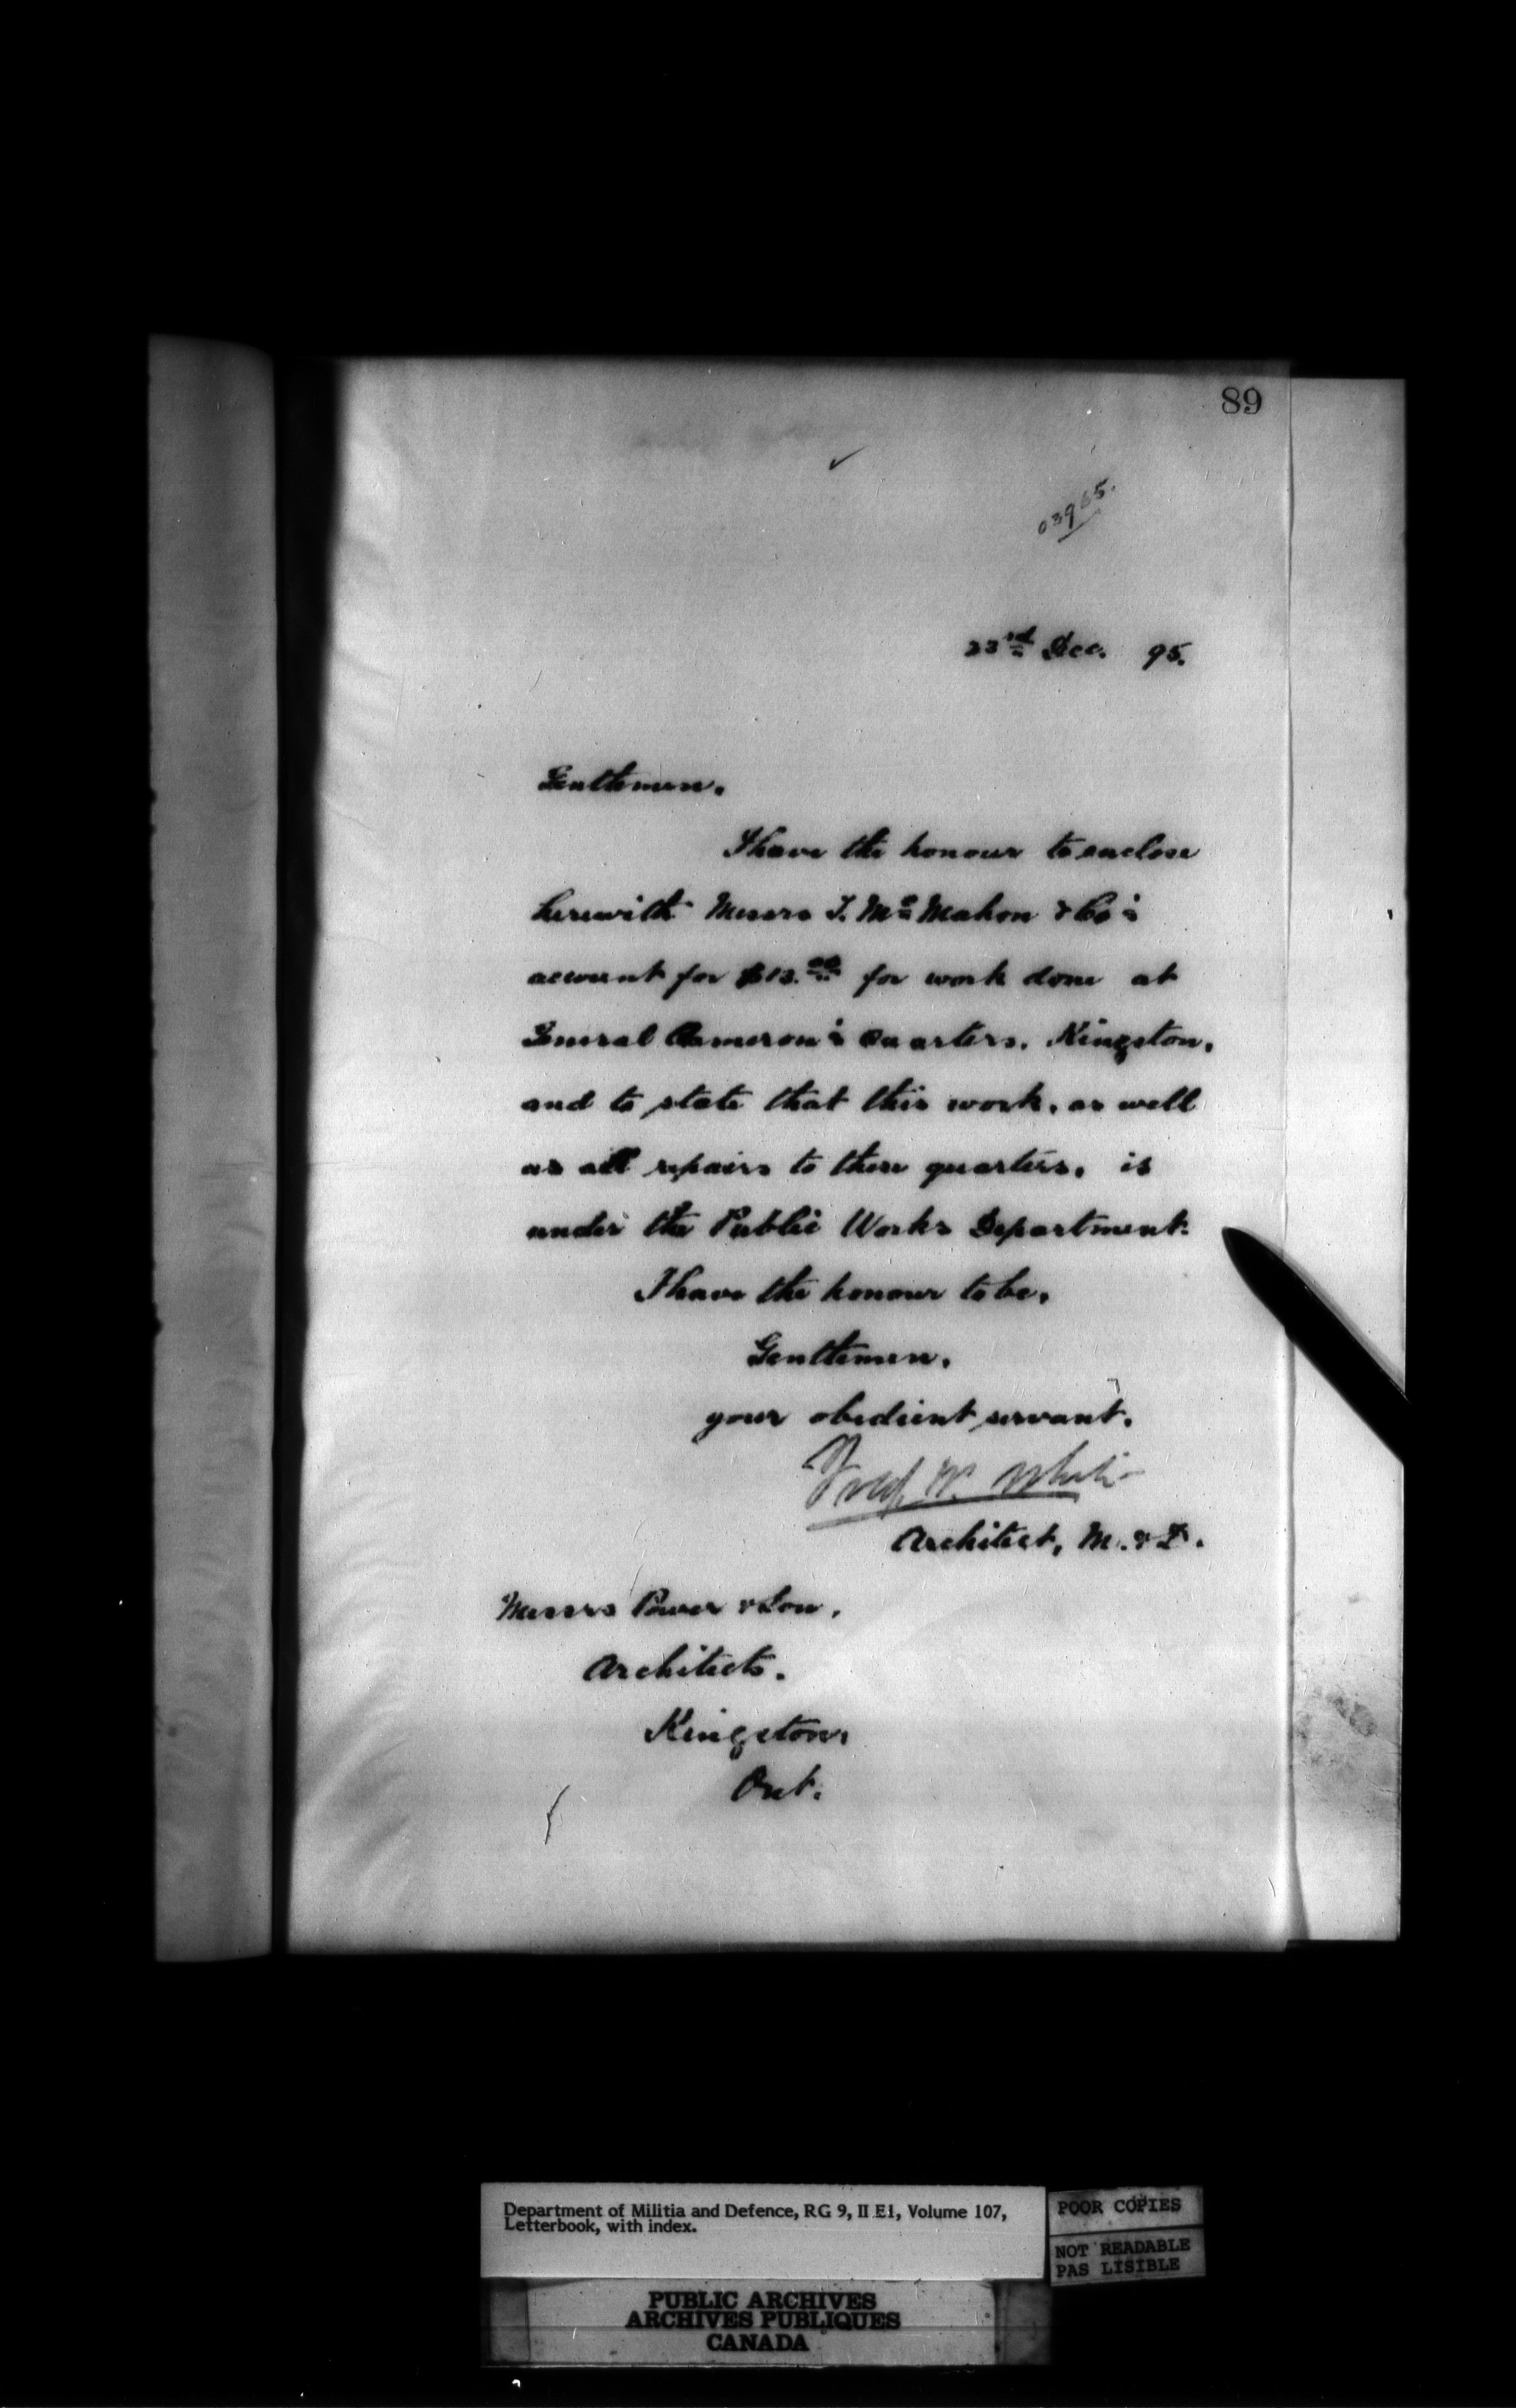 89
03965.
23rd Dec. 95.
Gentlemen,
I have the honour to enclose
herewith Messrs T. McMahon & Co's
account for $13.00 for work done at
General Cameron's Quarters, Kingston,
and to state that this work, as well
as all repairs to these quarters, is
under the Public Works Department.
I have the honour to be,
Gentlemen,
your obedient servant,
Fred. W. White
Architect, M. & D.
Messrs Power & Son,
Architects.
Kingston,
Ont.
Department of Militia and Defence, RG 9, II E1, Volume 107,
Letterbook, with index.
POOR COPIES
NOT READABLE
PAS LISIBLE
PUBLIC ARCHIVES
ARCHIVES PUBLIQUES
CANADA